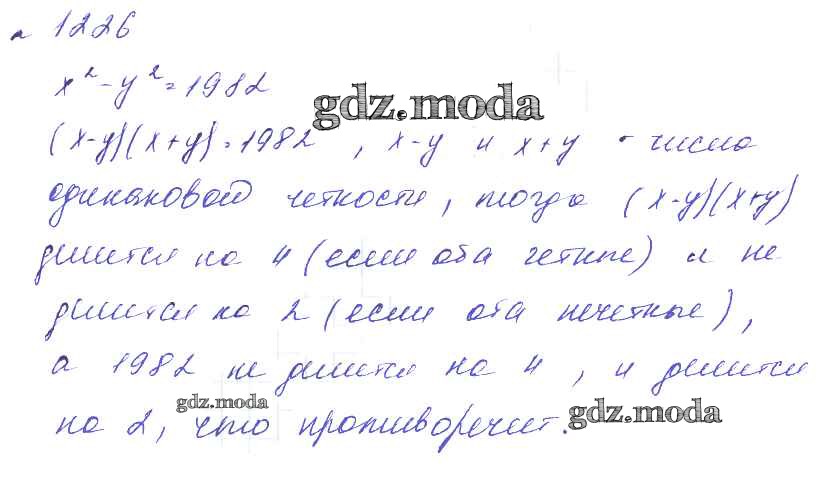 1226
x² - y² = 1982
(x-y)(x+y) = 1982, x-y и x+y - числа
одинаковой четкости, тогда (x-y)(x+y)
делится на 4 (если оба четные) и не
делится на 2 (если оба нечетные),
а 1982 не делится на 4, и делится
на 2, что противоречит.
gdz.moda
gdz.moda
gdz.moda